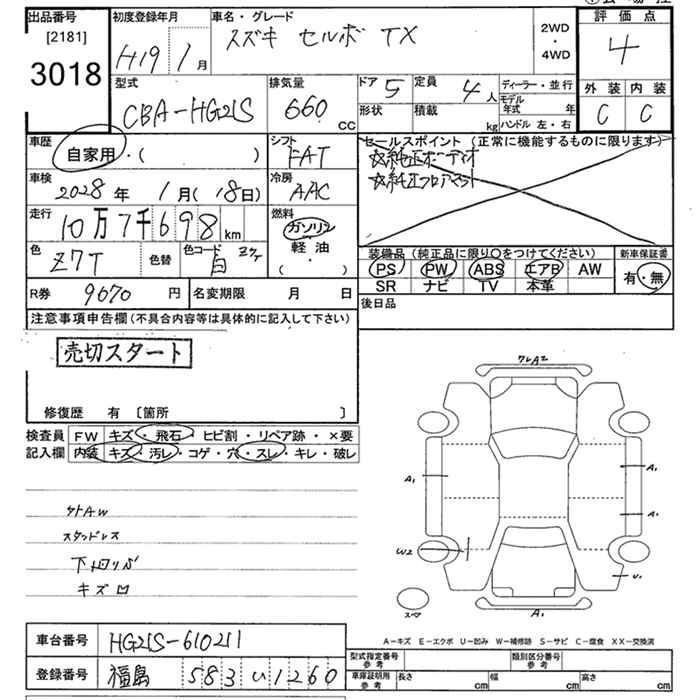 出品番号 [2181] 3018
初度登録年月 H19 1月
車名・グレード スズキ セルボ TX
2WD・4WD
評価点 4
型式 CBA-HG21S
排気量 660 CC
ドア 5
定員 4人
形状
積載 kg
ディーラー・並行
モデル年式 年
ハンドル 左・右
外装 C
内装 C
車歴 自家用・( )
シフト FAT
セールスポイント (正常に機能するものに限ります)
☆純正オーディオ
☆純正フロアマット
車検 2028年 1月(18日)
冷房 AAC
走行 10万7千698km
燃料 ガソリン 軽油 ( ・ )
色 Z7T
色替
色コード 白
装備品(純正品に限り○をつけてください)
PS PW ABS エアB AW
SR ナビ TV 本革
新車保証書 有・無
R券 9670円
名変期限 月 日
後日品
注意事項申告欄(不具合内容等は具体的に記入して下さい)
売切スタート
修復歴 有 〔箇所 〕
検査員記入欄
FW キズ・飛石・ヒビ割・リペア跡・×要
内装 キズ・汚レ・コゲ・穴・スレ・キレ・破レ
社外AW
スタッドレス
下回りサビ
キズ凹
クレA2
A1
A1
A1
W2
U1
A1
スペア
A-キズ E-エクボ U-凹み W-補修跡 S-サビ C-腐食 XX-交換済
車台番号 HG21S-610211
登録番号 福島 583 い 1260
型式指定番号 参考
類別区分番号 参考
車庫証明用 参考 長さ cm 幅 cm 高さ cm